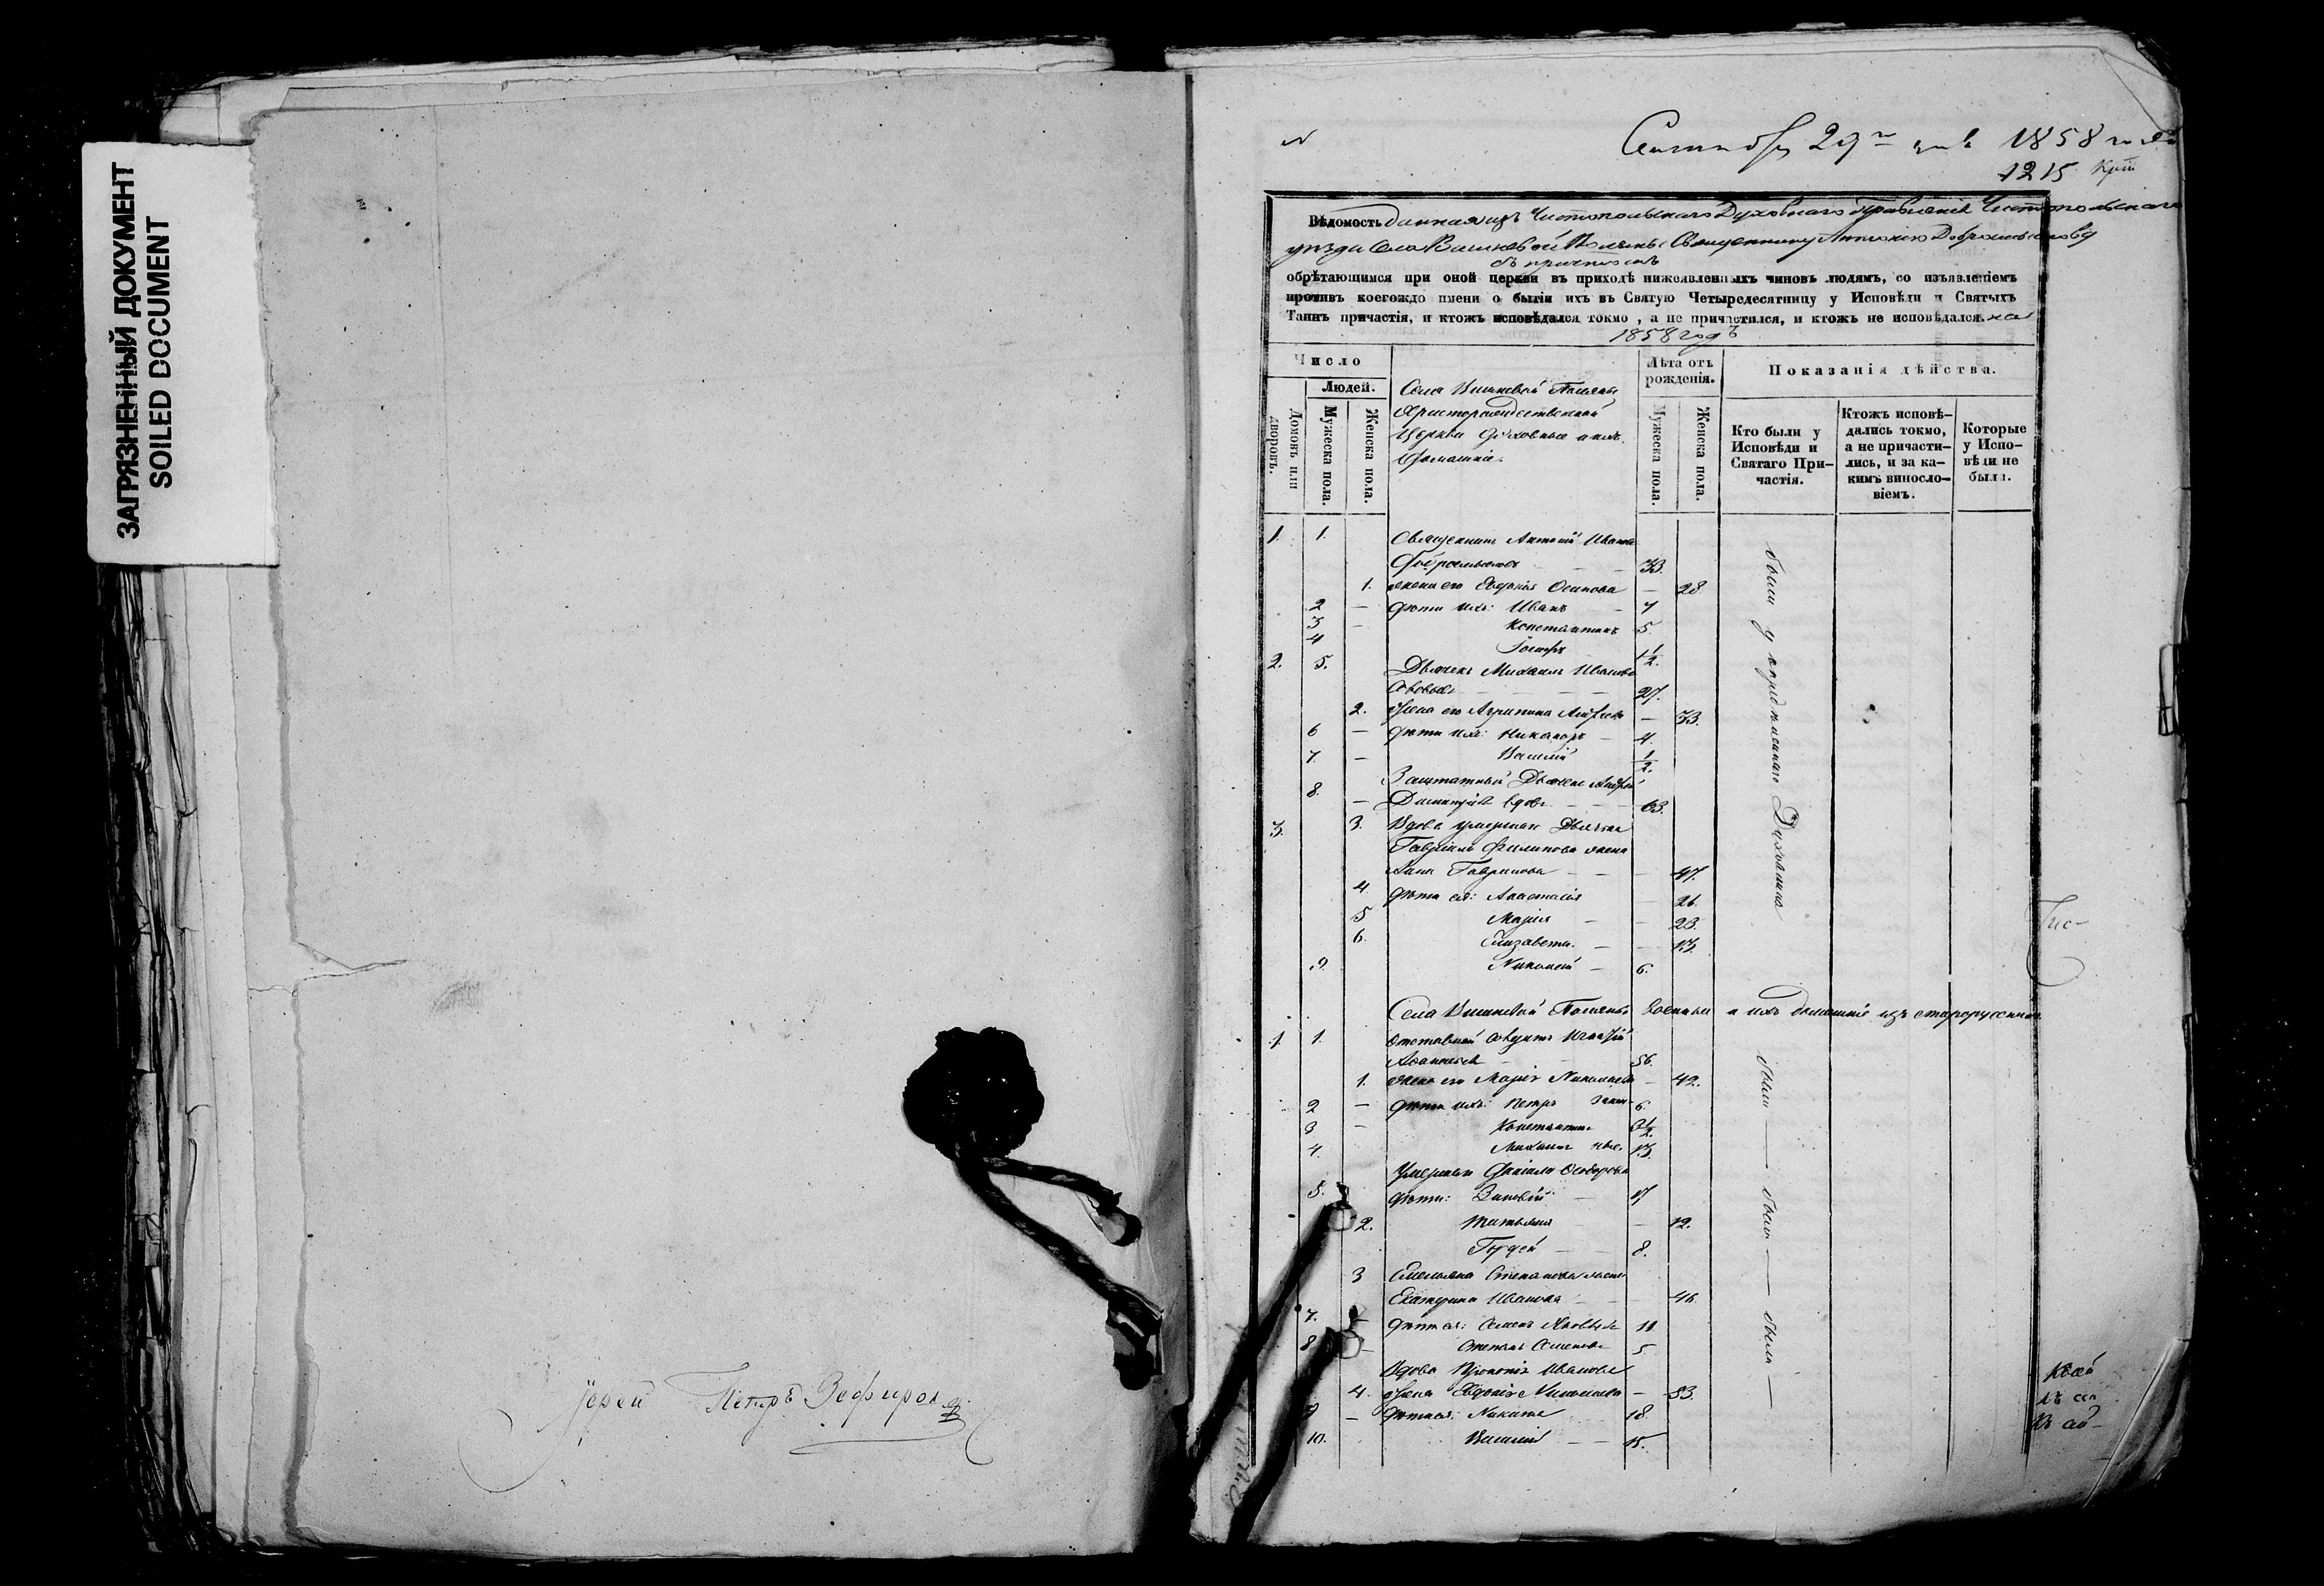 ЗАГРЯЗНЕННЫЙ ДОКУМЕНТ
SOILED DOCUMENT
Іерей Петръ Зефировъ
29 1858 года
1215
Вѣдомость данная изъ Чистопольскаго Духовнаго Правленія Чистопольскаго
уѣзда Села Вишневой Поляны Священнику Антонію Добросмыслову
съ причтомъ
обрѣтающимся при оной церкви въ приходѣ нижеявленныхъ чиновъ людямъ, со изъявленіемъ
противъ коегождо имени о бытіи ихъ въ Святую Четыредесятницу у Исповѣди и Святыхъ
Таинъ причастія, и ктожъ исповѣдался токмо, а не причастился, и ктожъ не исповѣдался. на
1858 годъ
Число
Людей.
Домовъ или дворовъ.
Мужеска пола.
Женска пола.
Села Вишневой Поляны
Христорождественской
Церкви Духовные и ихъ
домашніе.
Лѣта отъ рожденія.
Мужеска пола.
Женска пола.
Показанія дѣйства.
Кто были у Исповѣди и Святаго При-частія.
Ктожъ исповѣ-дались токмо, а не причасти-лись, и за ка-кимъ винослo-віемъ.
Которые у Испо-вѣди не были.
1. 1. Священникъ Антоній Иванов
33.
1. жена его Евдокія Осипова — 28
2 — дѣти ихъ: Иванъ — 7
3 — Константинъ 5.
4 1½.
2. 5. Дьячекъ Михаилъ Иванов
27.
2. жена его Агрипина — 33.
6 — дѣти ихъ: Никаноръ — 4.
7. — Василій ½.
8. Заштатный Дьячекъ Андрей
— вдовъ — 63.
3. 3. Вдова умершаго Дьячка
Гавріила Филипова жена
Анна Гаврилова — — 47.
4. дѣти ея: Анастасія 26.
5 Марія — — 23.
6. Елизавета. — — 13.
9. Николай — 6.
были у
Села Вишневой Поляны Военные и ихъ домашніе изъ старорусскихъ
1. 1. Отставной Игнатій
56.
1. жена его Марія Николаева — 42.
2 — дѣти ихъ: Петръ 6.
3 — Константинъ 3½.
4. Михаилъ 13.
Умершаго
5. дѣти: Зиновій — 17
2. Татьяна — 12.
Гордей — 8.
3 Емельяна Степанова жена
Екатерина Иванова — 46.
7. дѣти ея: Семенъ 11
8 — Степанъ 5.
Вдова Прокопія Иванова
4. жена Евдокія — 53.
9 — дѣти ея: Никита 18.
10. Василій — — 15.
были — были — были —